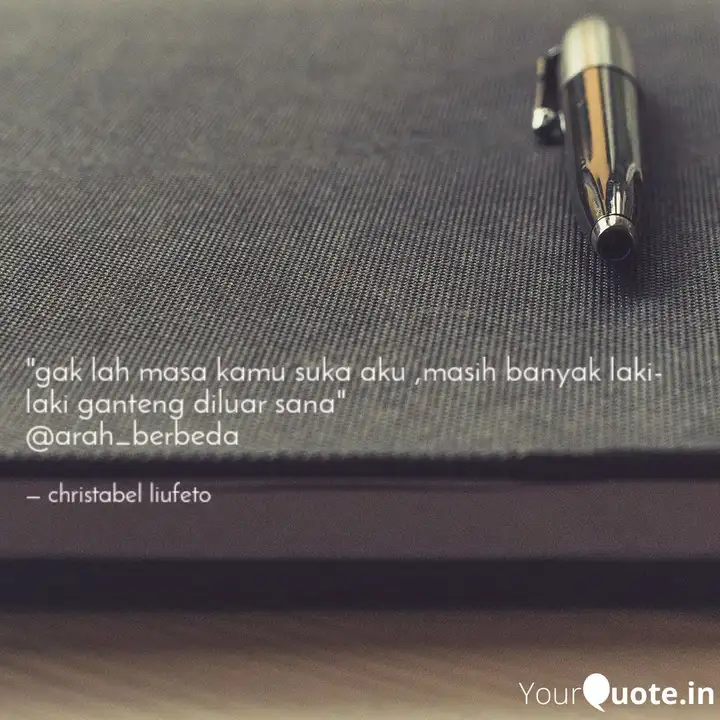 "gak lah masa kamu suka aku ,masih banyak laki-
laki ganteng diluar sana"
@arah_berbeda
– christabel liufeto
YourQuote.in